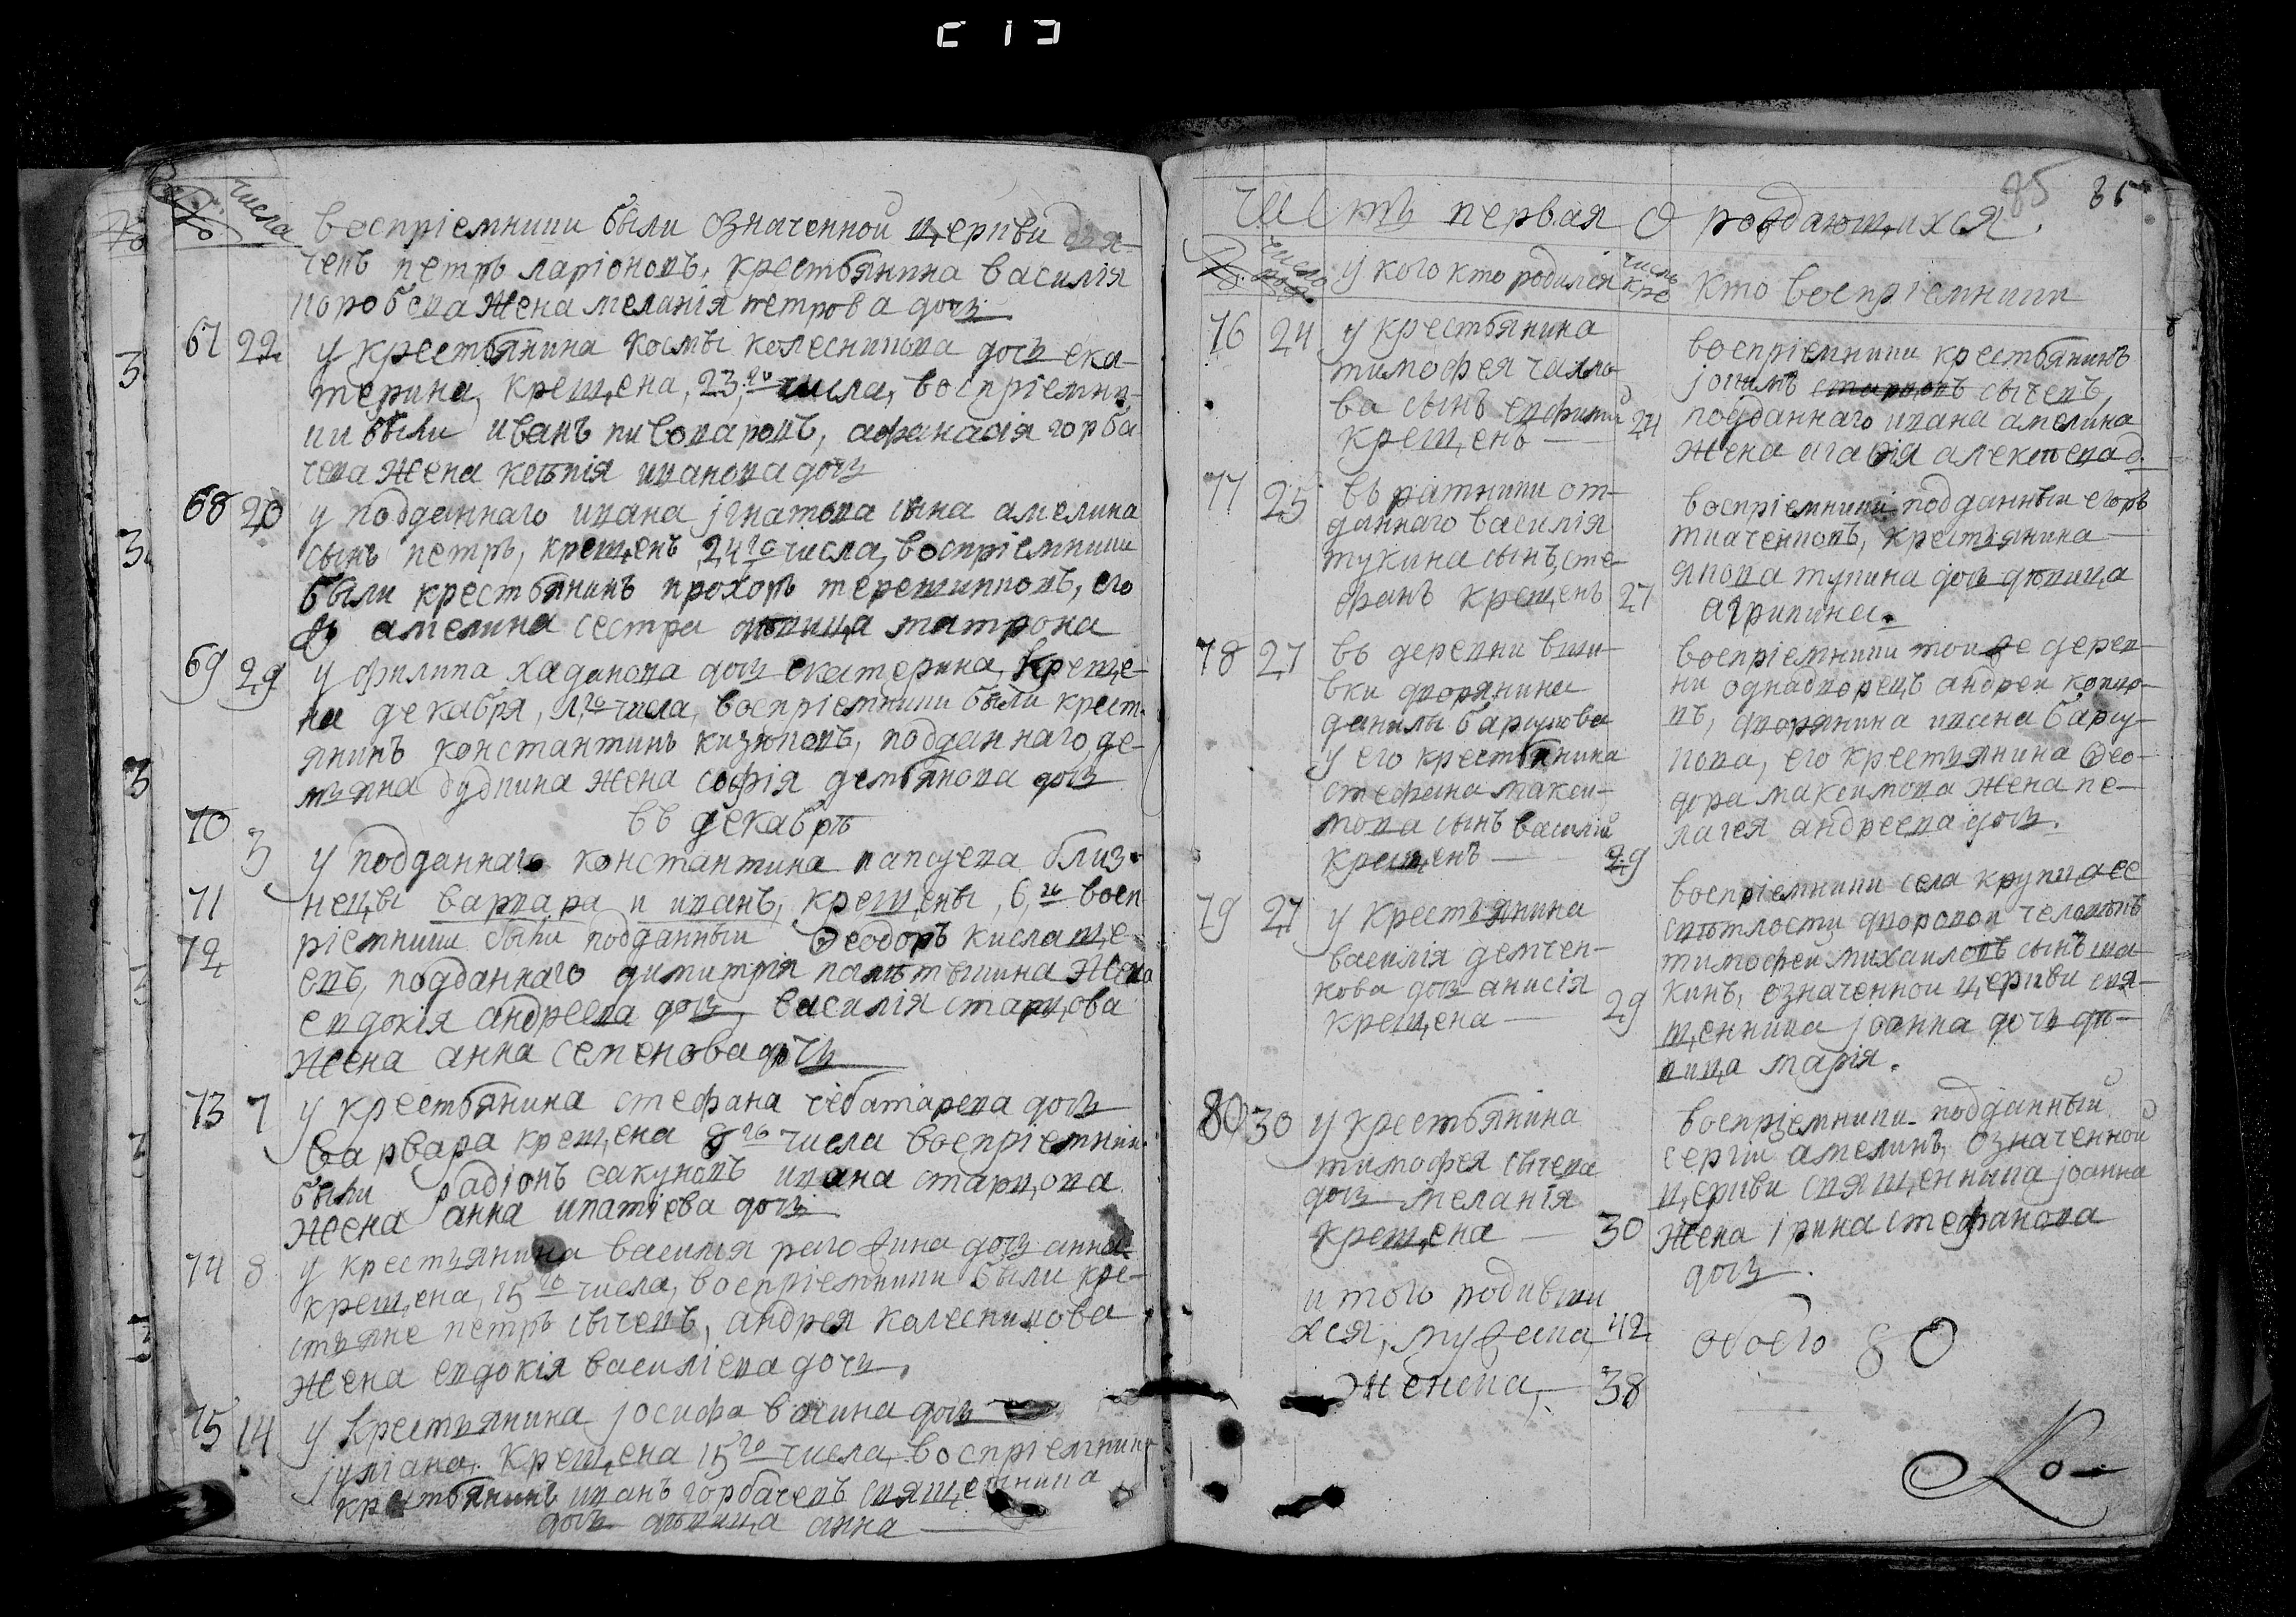 числа
воспріемники были означенной церкви дья-
чекъ петръ ларіоновъ, крестьянина василія
коробева жена меланія петрова дочь
67 22 у крестьянина космы колесникова дочь ека-
терина, крещена, 23,го числа, воспріемни-
ки были иванъ пивоваровъ, афанасія горба
чева жена ксѣнія иванова дочь
68 20 у подданнаго ивана јгнатова сына амелина
сынъ петръ, крещенъ 24го числа, воспріемники
были крестьянинъ прохоръ терешинковъ, его
амелина сестра дѣвица матрона
69 29 у филипа хадакова дочь екатерина, креще-
на декабря, 1,го числа, воспріемники были крест-
янинъ константинъ кизюковъ, подданнаго де-
мьяна дудкина жена софія демьянова дочь
въ декабрѣ
70 3 у подданнаго константина папсуева близ-
71 нецы варвара и иванъ, крещены, 6,го восп
72 ріемники были подданный Ѳеодоръ кислаще-
евъ, подданнаго димитрія жена
евдокія андреева дочь, василія старцова
жена анна семенова дочь
73 7 у крестьянина стефана чеботарева дочь
варвара крещена 8го числа воспріемники
были радіонъ сакуновъ ивана старцова
жена анна ипатіева дочь
74 8 у крестьянина василія рагожина дочь анна
крещена, 15го числа, воспріемники были кре-
стьяне петръ сычевъ, андрея колесникова
жена евдокія василіева дочь,
75 14 у крестьянина јосифа вагина дочь
јуліана. крещена 15го числа, воспріемники
крестьянинъ иванъ горбачевъ священника
дочь дѣвица анна
85 85
часть первая о рождающихся.
у кого кто родился числа кре кто воспріемники
76 24 у крестьянина
тимофея чалло-
ва сынъ евфимій
крещенъ — 24
воспріемники крестьянинъ
јоакимъ сычевъ,
подданнаго ивана амелина
жена агафія алексѣева д.
77 25 въ ратники от-
даннаго василія
тукина сынъ, сте-
фанъ крещенъ 27
воспріемники подданный егоръ
ткаченковъ, крестьянина
якова тукина дочь дѣвица
агрипина.
78 27 въ деревни вши-
вки дворянина
данилы барсукова
у его крестьянина
стефана макси-
мова сынъ василій
крещенъ — 29
воспріемники тои же дерев-
ни однадворецъ андреи копцо-
въ, дворянина ивана барсу-
кова, его крестьянина Ѳео-
дора максимова жена пе-
лагея андреева дочь.
79 27 у крестьянина
василія демчен-
кова дочь анисія
крещена — 29
воспріемники села крупца ее
свѣтлости дворовои человѣкъ
тимофеи михаиловъ сынъ ша-
кинъ, означенной церкви свя-
щенника јоанна дочь дѣ-
вица марія.
80 30 у крестьянина
тимофея сычева
дочь меланія
крещена — 30
воспріемники подданный
сергіи амелинъ, означенной
церкви священника јоанна
жена ірина стефанова
дочь.
итого родивши
хся, мужеска 42
женска, — 38
обоего 80